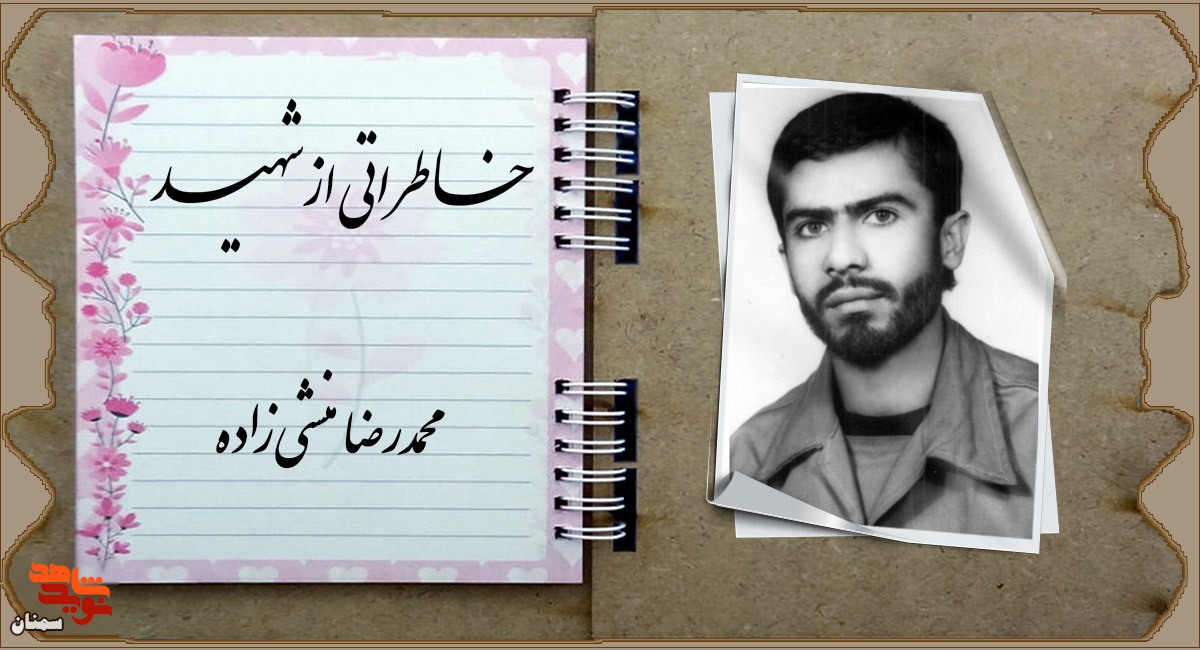 خاطراتی از شهید
محمدرضا منشی زاده
نوید شاهد
سمنان